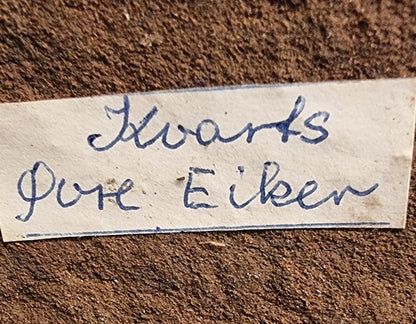 Kvarts
Øvre Eiker